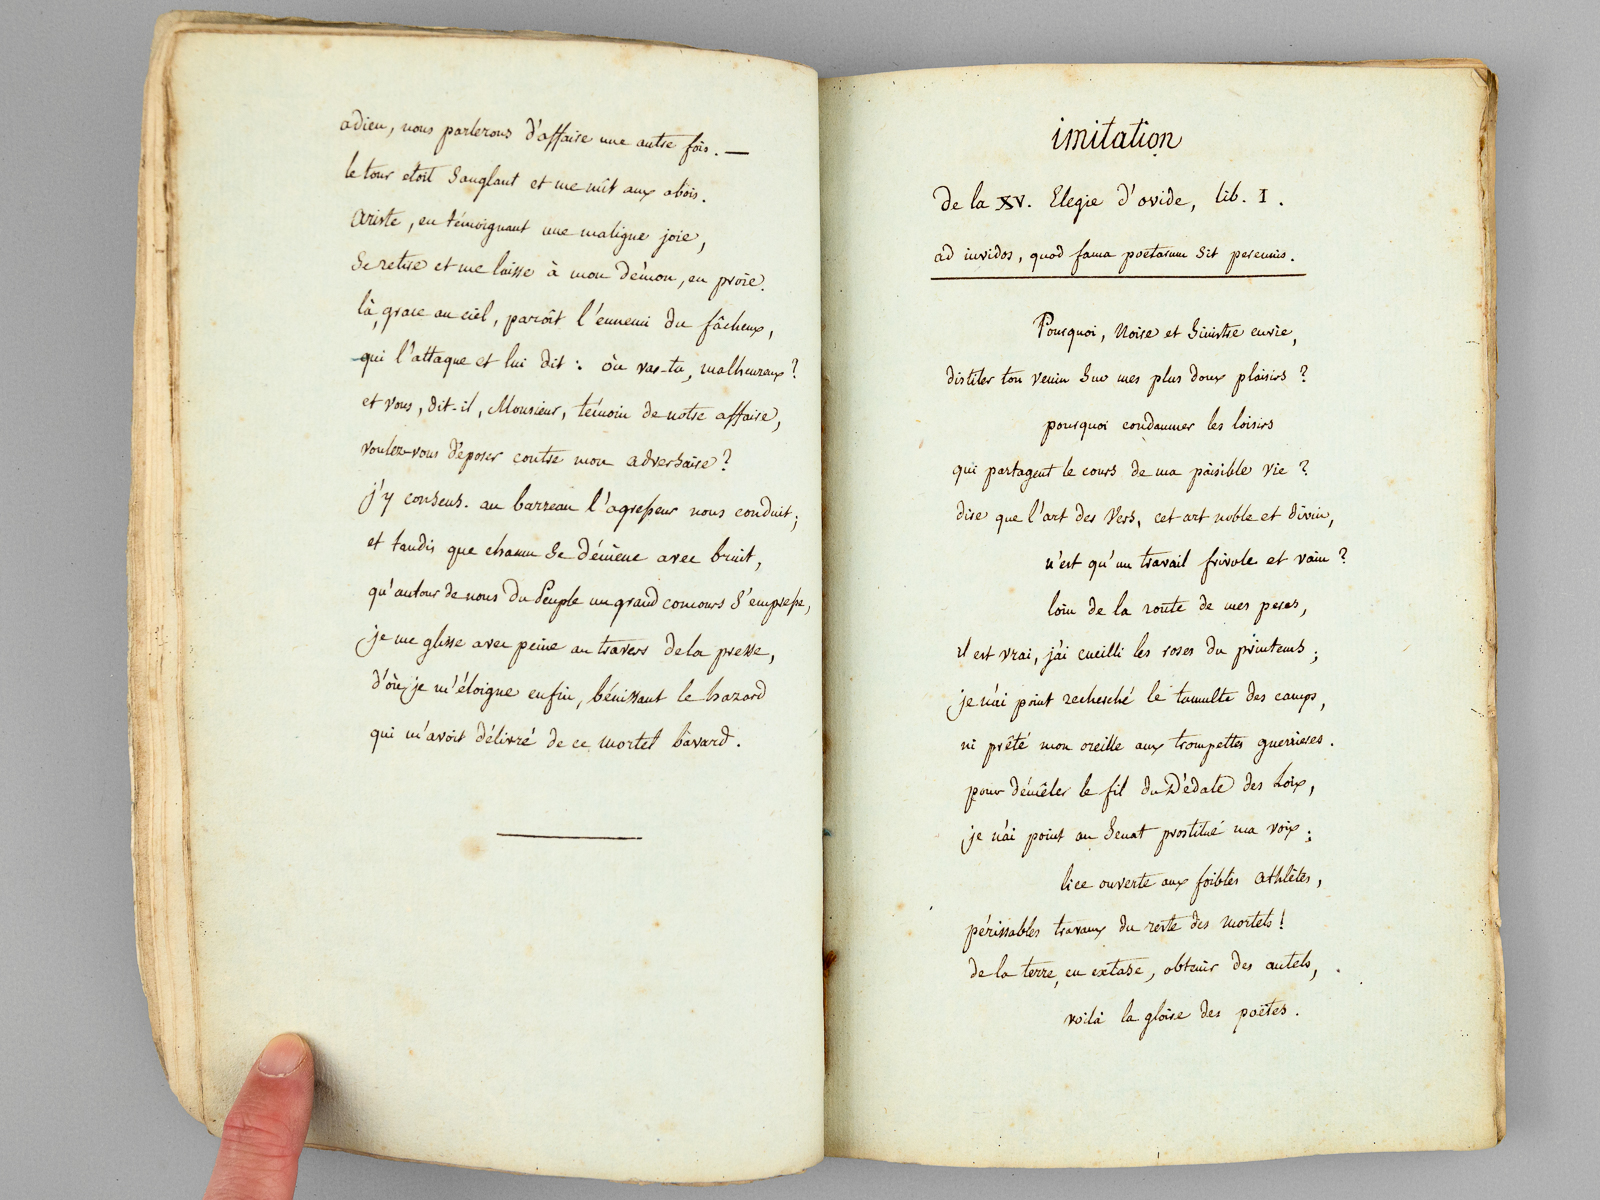 adieu, nous parlerons d'affaire une autre fois. —
le tour étoit Sanglant et me mît aux abois.
Ariste, en témoignant une maligne joie,
Se retire et me laisse à mon démon, en proie.
là, grace au ciel, paroît l'ennemi du fâcheux,
qui l'attaque et lui dit : où vas-tu, malheureux ?
et vous, dit-il, Monsieur, témoin de notre affaire,
voulez-vous déposer contre mon adversaire ?
j'y consens. au barreau l'agresseur nous conduit ;
et tandis que chacun se démène avec bruit,
qu'autour de nous du Peuple un grand concours S'empresse,
je me glisse avec peine au travers de la presse,
d'où je m'éloigne enfin, bénissant le hazard
qui m'avoit délivré de ce mortel bavard.
imitation
De la XV. Elegie d'ovide, lib. I.
ad invidos, quod fama poëtarum Sit perennis.
Pourquoi, Noire et Sinistre envie,
distiler ton venin Sur mes plus doux plaisirs ?
pourquoi condamner les loisirs
qui partagent le cours de ma paisible vie ?
dire que l'art des Vers, cet art noble et divin,
n'est qu'un travail frivole et vain ?
loin de la route de mes peres,
il est vrai, j'ai cueilli les roses du printems ;
je n'ai point recherché le tumulte des camps,
ni prêté mon oreille aux trompettes guerrieres.
pour démêler le fil du Dédale des Loix,
je n'ai point au Senat prostitué ma voix ;
lice ouverte aux foibles athlètes,
périssables travaux du reste des mortels !
de la terre, en extase, obtenir des autels,
voilà la gloire des poëtes.